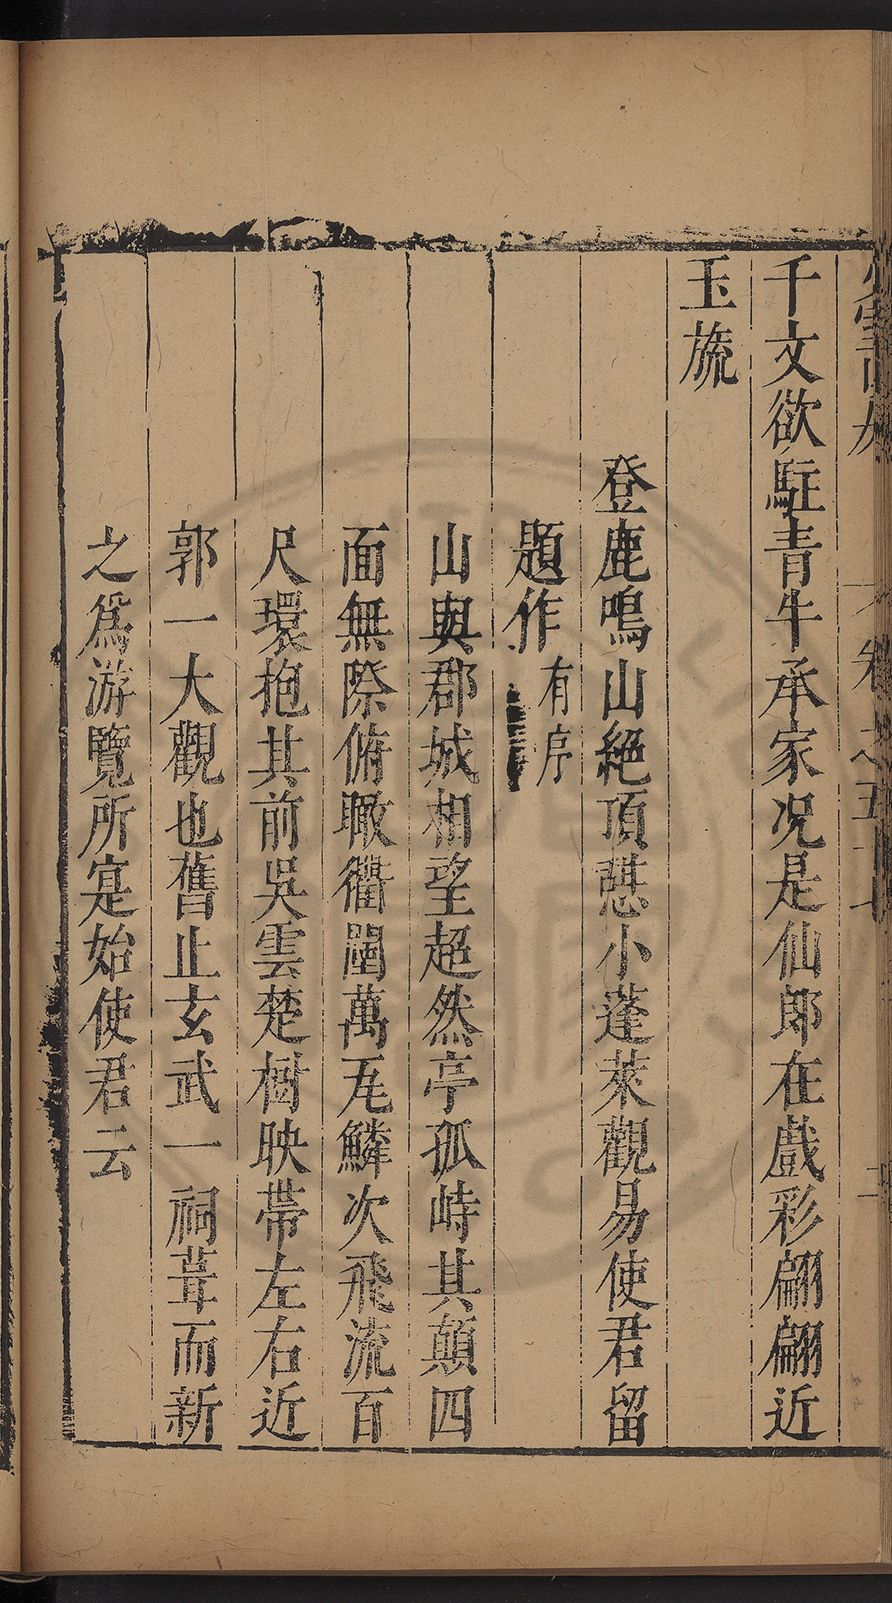 卷之五
千文欲駐青牛承家况是仙郎在戲彩翩翩近
玉旒
登鹿鳴山絶頂憇小蓬萊觀易使君留
題作有序
山與郡城相望超然亭孤峙其顛四
面無際俯瞰衢闉萬瓦鱗次飛流百
尺環抱其前吳雲楚樹映帶左右近
郭一大觀也舊止玄武一祠葺而新
之爲游覽所寔始使君云